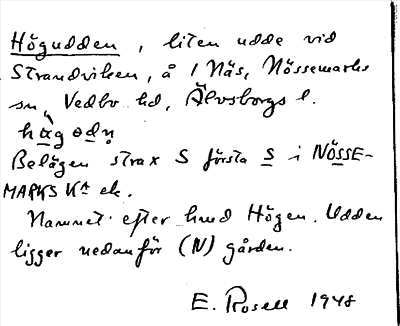 Högudden, liten udde vid
Strandviken, å 1 Näs, Nössemarks
sn, Vedbo hd, Älvsborgs l.
hä̀g ɵdn̥
Belägen strax S första S i NÖSSE-
MARKS Kᴬ ek.
Namnet efter hmd Högen. Udden
ligger nedanför (N) gården.
E. Rosell 1948